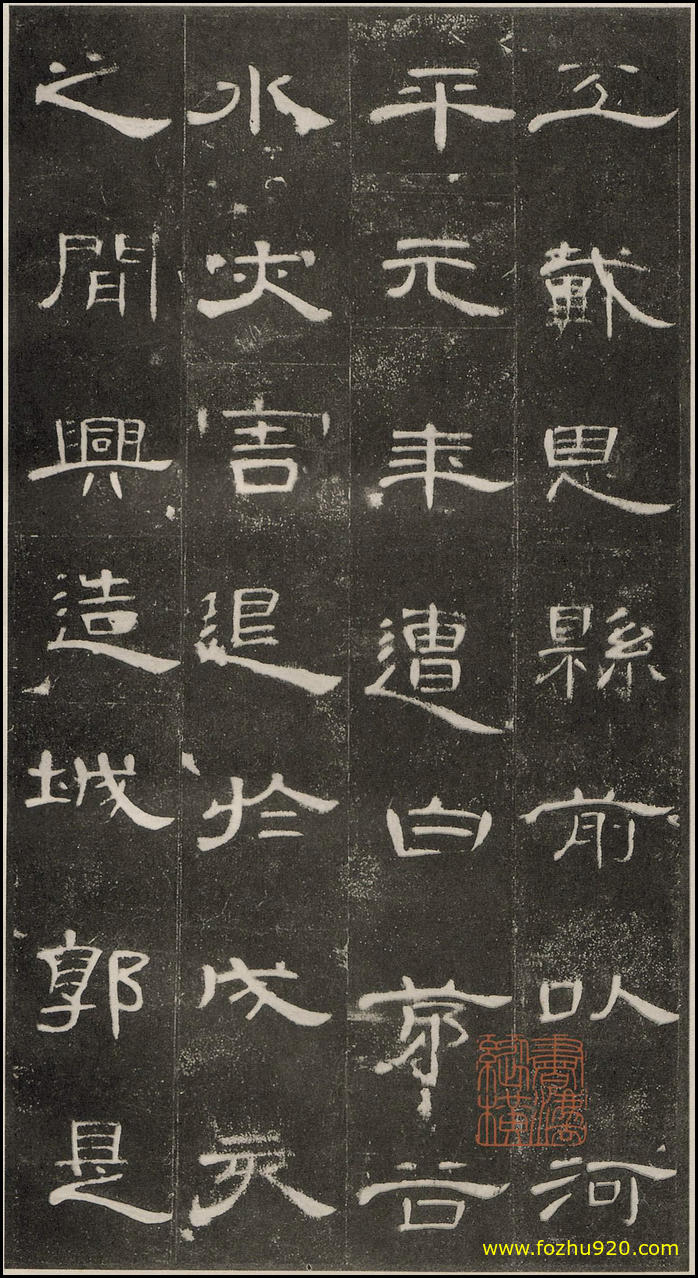 工戴恩縣前以河
平元年遭白茅谷
水灾害退於戌亥
之間興造城郭是
www.fozhu920.com